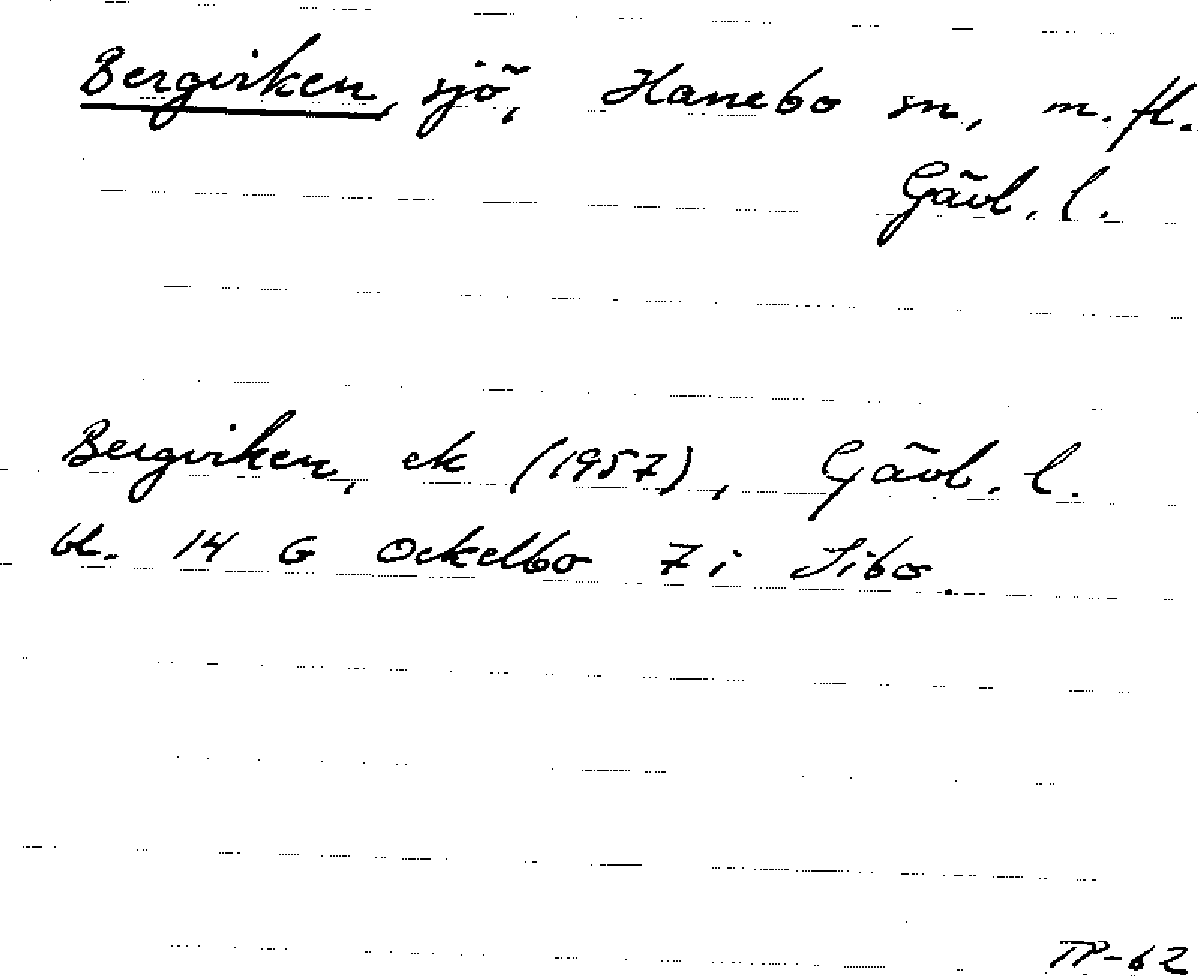 Bergviken, sjö, Hanebo sn, m. fl.
Gävl. l.
Bergviken, ek (1957), Gävl. l.
bl. 14 G Ockelbo 7 i Sibo.
TP-62